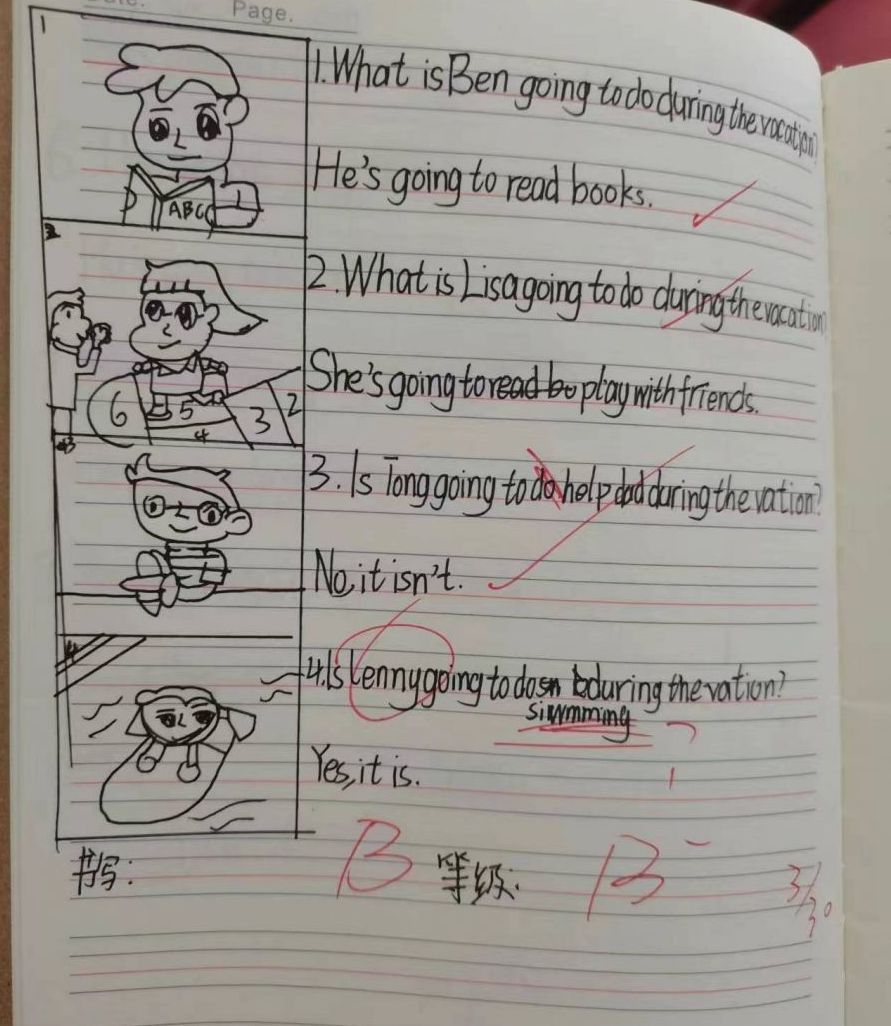 Page.
1
1. What is Ben going to do during the vacation?
ABC
He's going to read books.
2
2. What is Lisa going to do during the vacation
6 5 4 3 2
She's going to read bo play with friends.
3
3. Is Tong going to do help dad during the vation?
No, it isn't.
4
4. Is Lenny going to do during the vation?
siwmming
Yes, it is.
书写: B 等级: B-
3/30